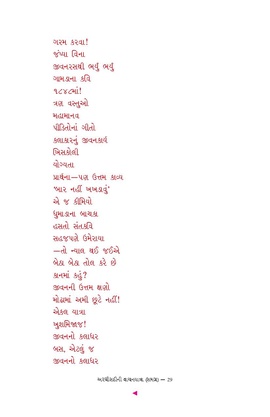 ગરમ કરવા!
જંપ્યા વિના
જીવનરસથી ભર્યું ભર્યું
ગામડાના કવિ
૧૮૪૮માં!
ત્રણ વસ્તુઓ
મહામાનવ
પીડિતોનાં ગીતો
કલાકારનું જીવનકાર્ય
ખિસકોલી
યોગ્યતા
પ્રાર્થના—પણ ઉત્તમ કાવ્ય
'બાર નહીં ખખડાવું'
એ જ કીમિયો
ધુમાડાના બાચકા
હસતો સંતકવિ
સહજપણે ઉમેરાવા
—તો ન્યાલ થઈ જઈએ
બેઠા બેઠા તોલ કરે છે
કાનમાં કહું?
જીવનની ઉત્તમ ક્ષણો
મોઢામાં અમી છૂટે નહીં!
એકલ યાત્રા
ખુશમિજાજ!
જીવનનો કલાધર
બસ, એટલું જ
જીવનનો કલાધર
અરધીસદીની વાચનયાત્રા (ભાગ૪) — 29